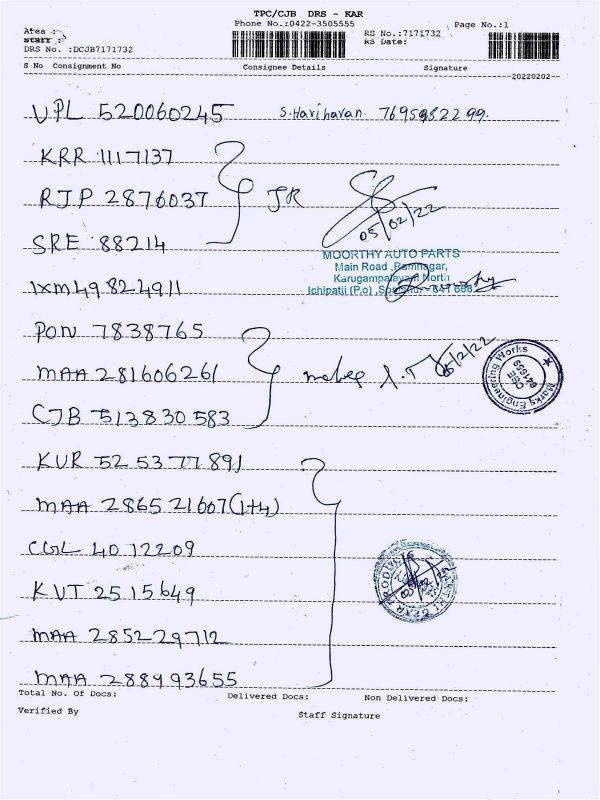 TPC/CJB DRS - KAR
Phone No.:0422-3505555
Page No.:1
Area :
Staff :
RS No.:7171732
RS Date:
DRS No. :DCJB7171732
S No Consignment No Consignee Details Signature
20220202
VPL 520060245 S.Hariharan 7695982299.
KRR 1117137
RJP 2876037 JR
05/02/22
SRE 88214
MOORTHY AUTO PARTS
Main Road ,Ramnagar,
Karugampalayam North
Ichipatti (P.o) 641 668.
IXM 49824911
PON 7838765
MAA 281606261 5/2/22
Marks Engineering Works
CBE
641659
CJB 513830583
KUR 525377891
MAA 286521607(1+4)
CGL 4072209
KVT 2515649
MAA 285229712
MAA 288993655
Total No. Of Docs: Delivered Docs: Non Delivered Docs:
Verified By Staff Signature